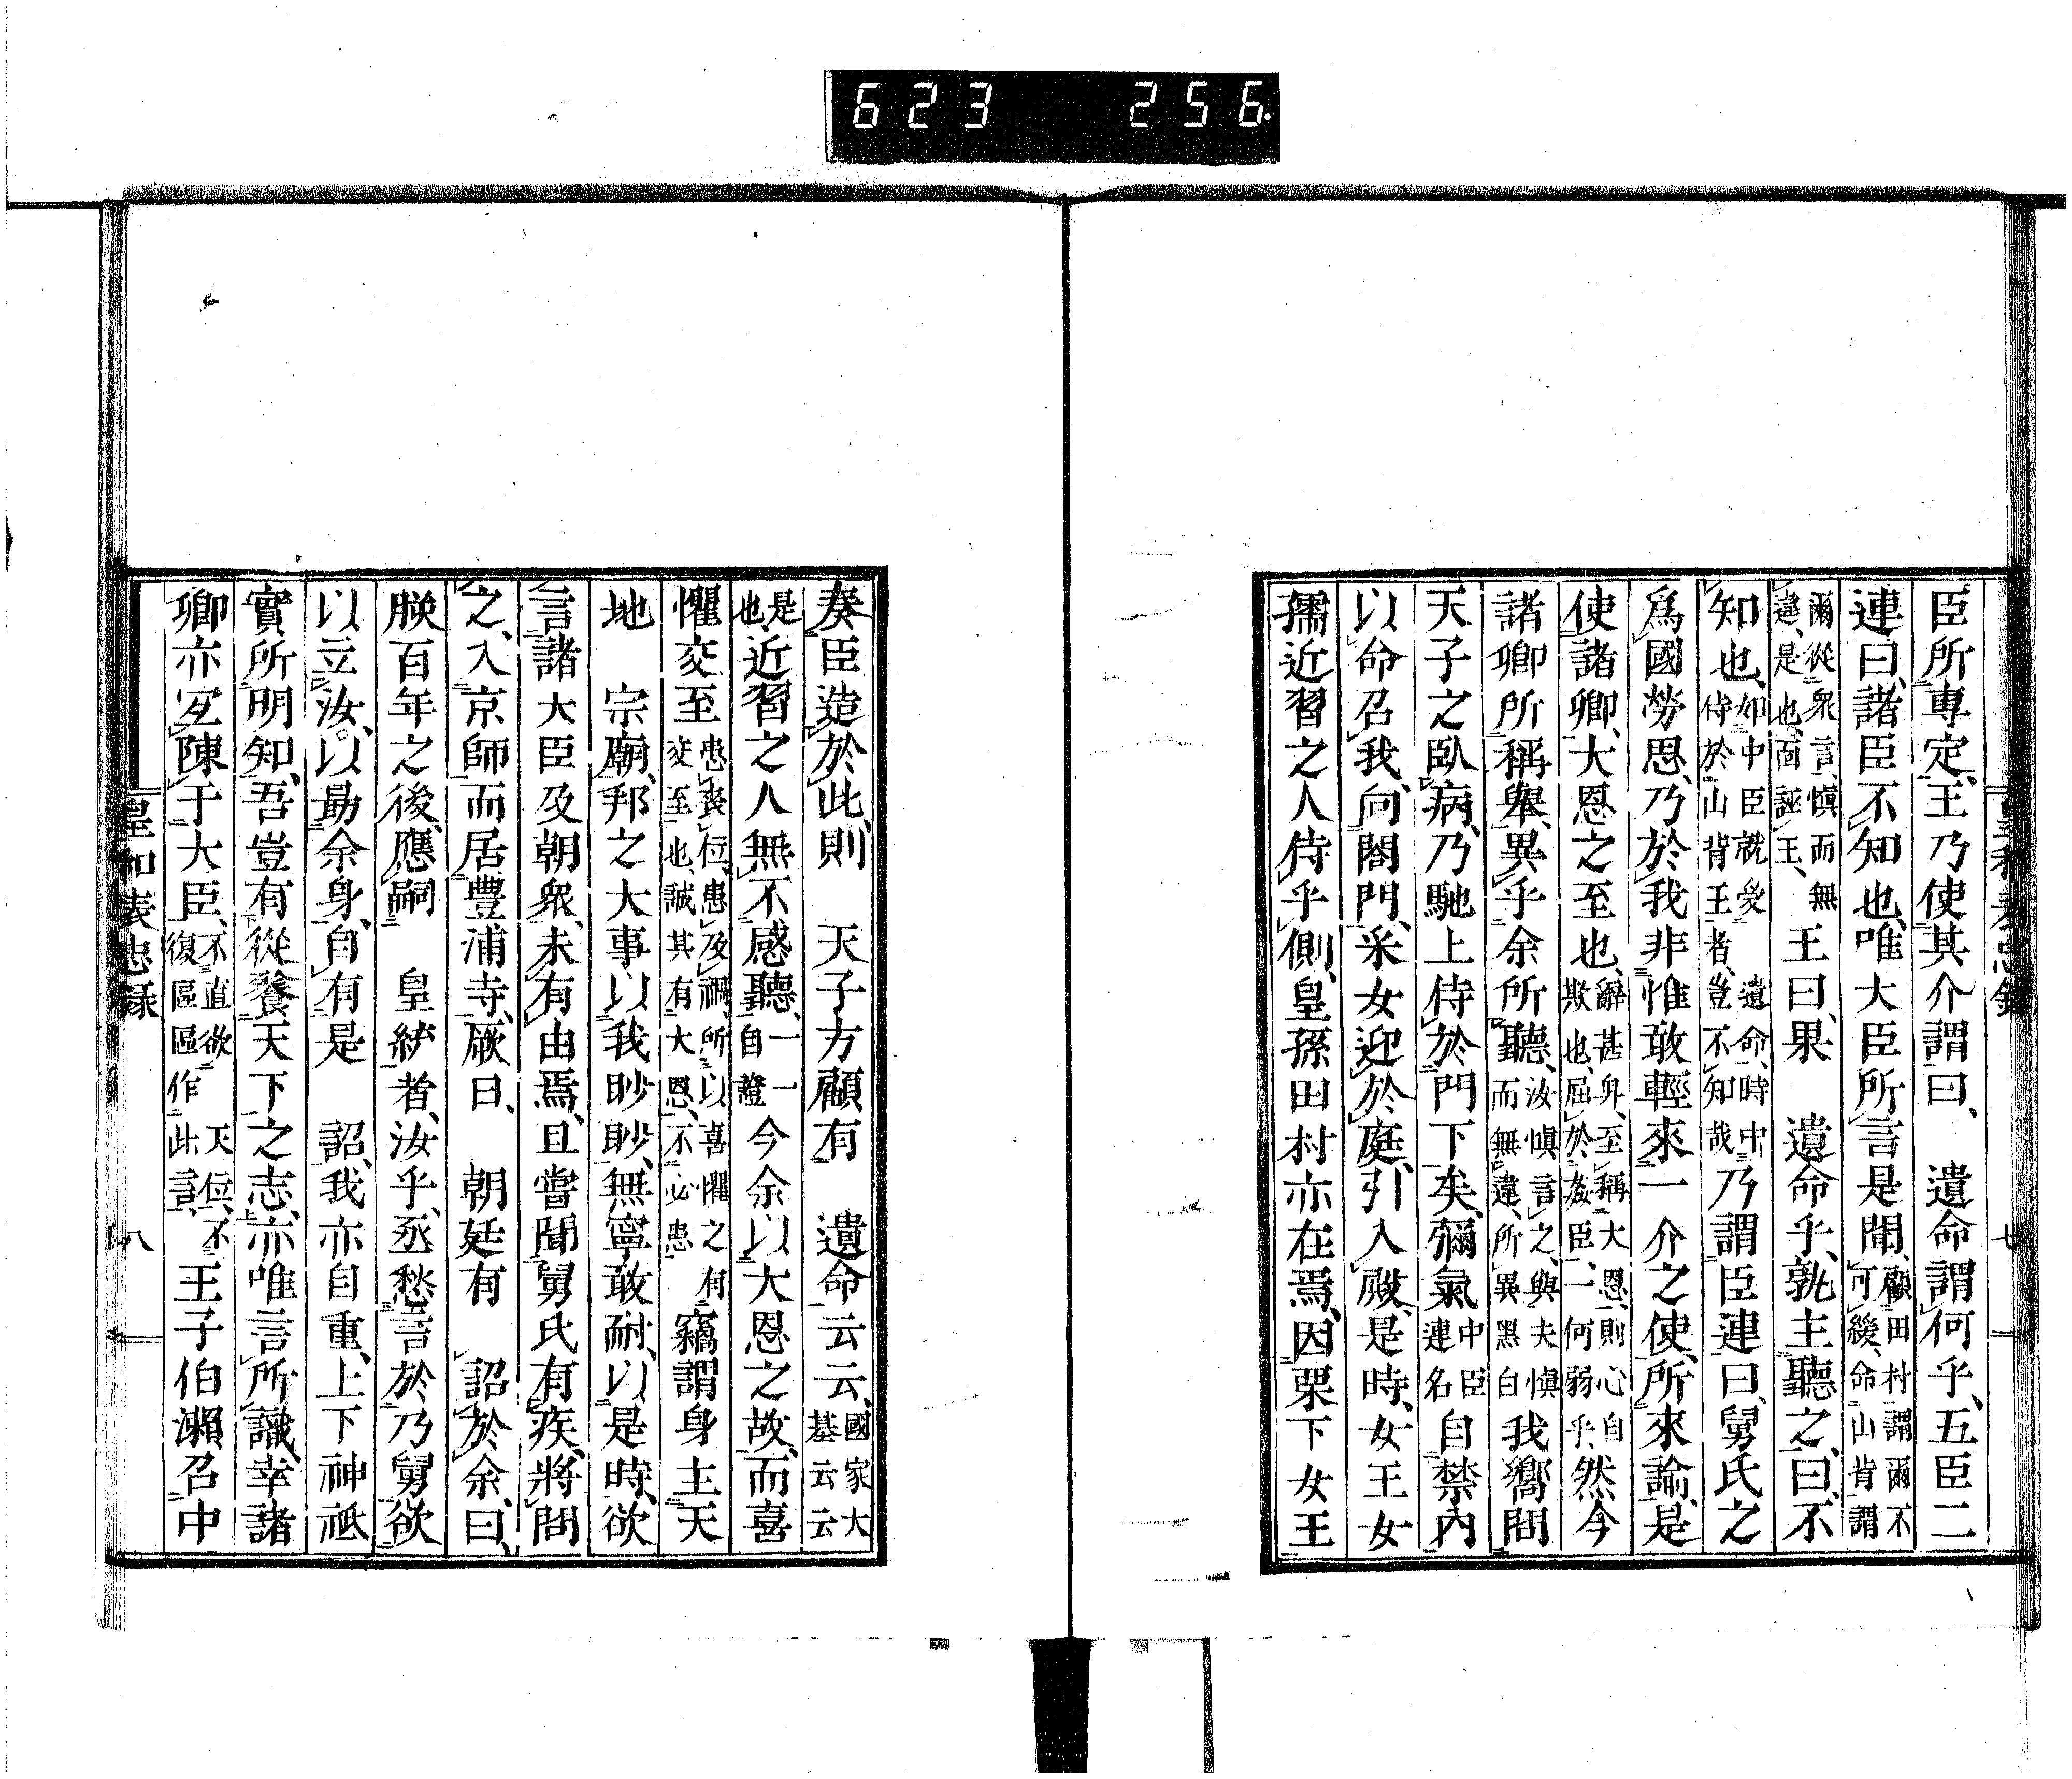 623 256
臣所專定、王乃使其介謂曰、 遺命謂何乎、五臣二
連曰、諸臣不知也、唯大臣所言是聞、顧田村謂爾不可緩、命山背謂
爾從衆言、愼而無違、是也、面誣王、王曰、果 遺命乎、孰主聽之、曰、不
知也、如中臣就受 遺命、時中侍於山背王者、豈不知哉乃謂臣連曰、舅氏之
爲國勞思、乃於我非惟敢輕來一介之使、所來諭、是
使諸卿、大恩之至也、辭甚卑、至稱大恩、則心自欺也、屈於姦臣、一何弱乎、然今
諸卿所稱舉、異乎余所聽、汝愼言之、與夫愼而無違、所異黑白我嚮問
天子之臥病、乃馳上侍於門下矣、彌氣中臣連名自禁內
以命召我、向閤門、采女迎於庭、引入殿、是時、女王女
孺近習之人侍乎側、皇孫田村亦在焉、因栗下女王
皇和表忠錄 七
奏臣造於此、則 天子方顧有 遺命云云、國家大基云云
是也、近習之人無不感聽、一一自證今余以大恩之故、而喜
懼交至患喪位、患及禍、所以喜懼之有交至也、誠其有大恩、不必患竊謂身主天
地 宗廟、邦之大事以我眇眇、無寧敢耐、以是時、欲
言諸大臣及朝衆、未有由焉、且嘗聞舅氏有疾、將問
之、入京師而居豐浦寺、厥日、 朝廷有 詔於余、曰、
朕百年之後、應嗣 皇統者、汝乎、丞愁言於乃舅欲
以立汝、以勗余身、自有是 詔、我亦自重、上下神祗
實所明知、吾豈有從養天下之志、亦唯言所識、幸諸
卿亦宜陳于大臣、不直欲 天位、不復區區作此言、王子伯瀨召中
皇和表忠錄 八